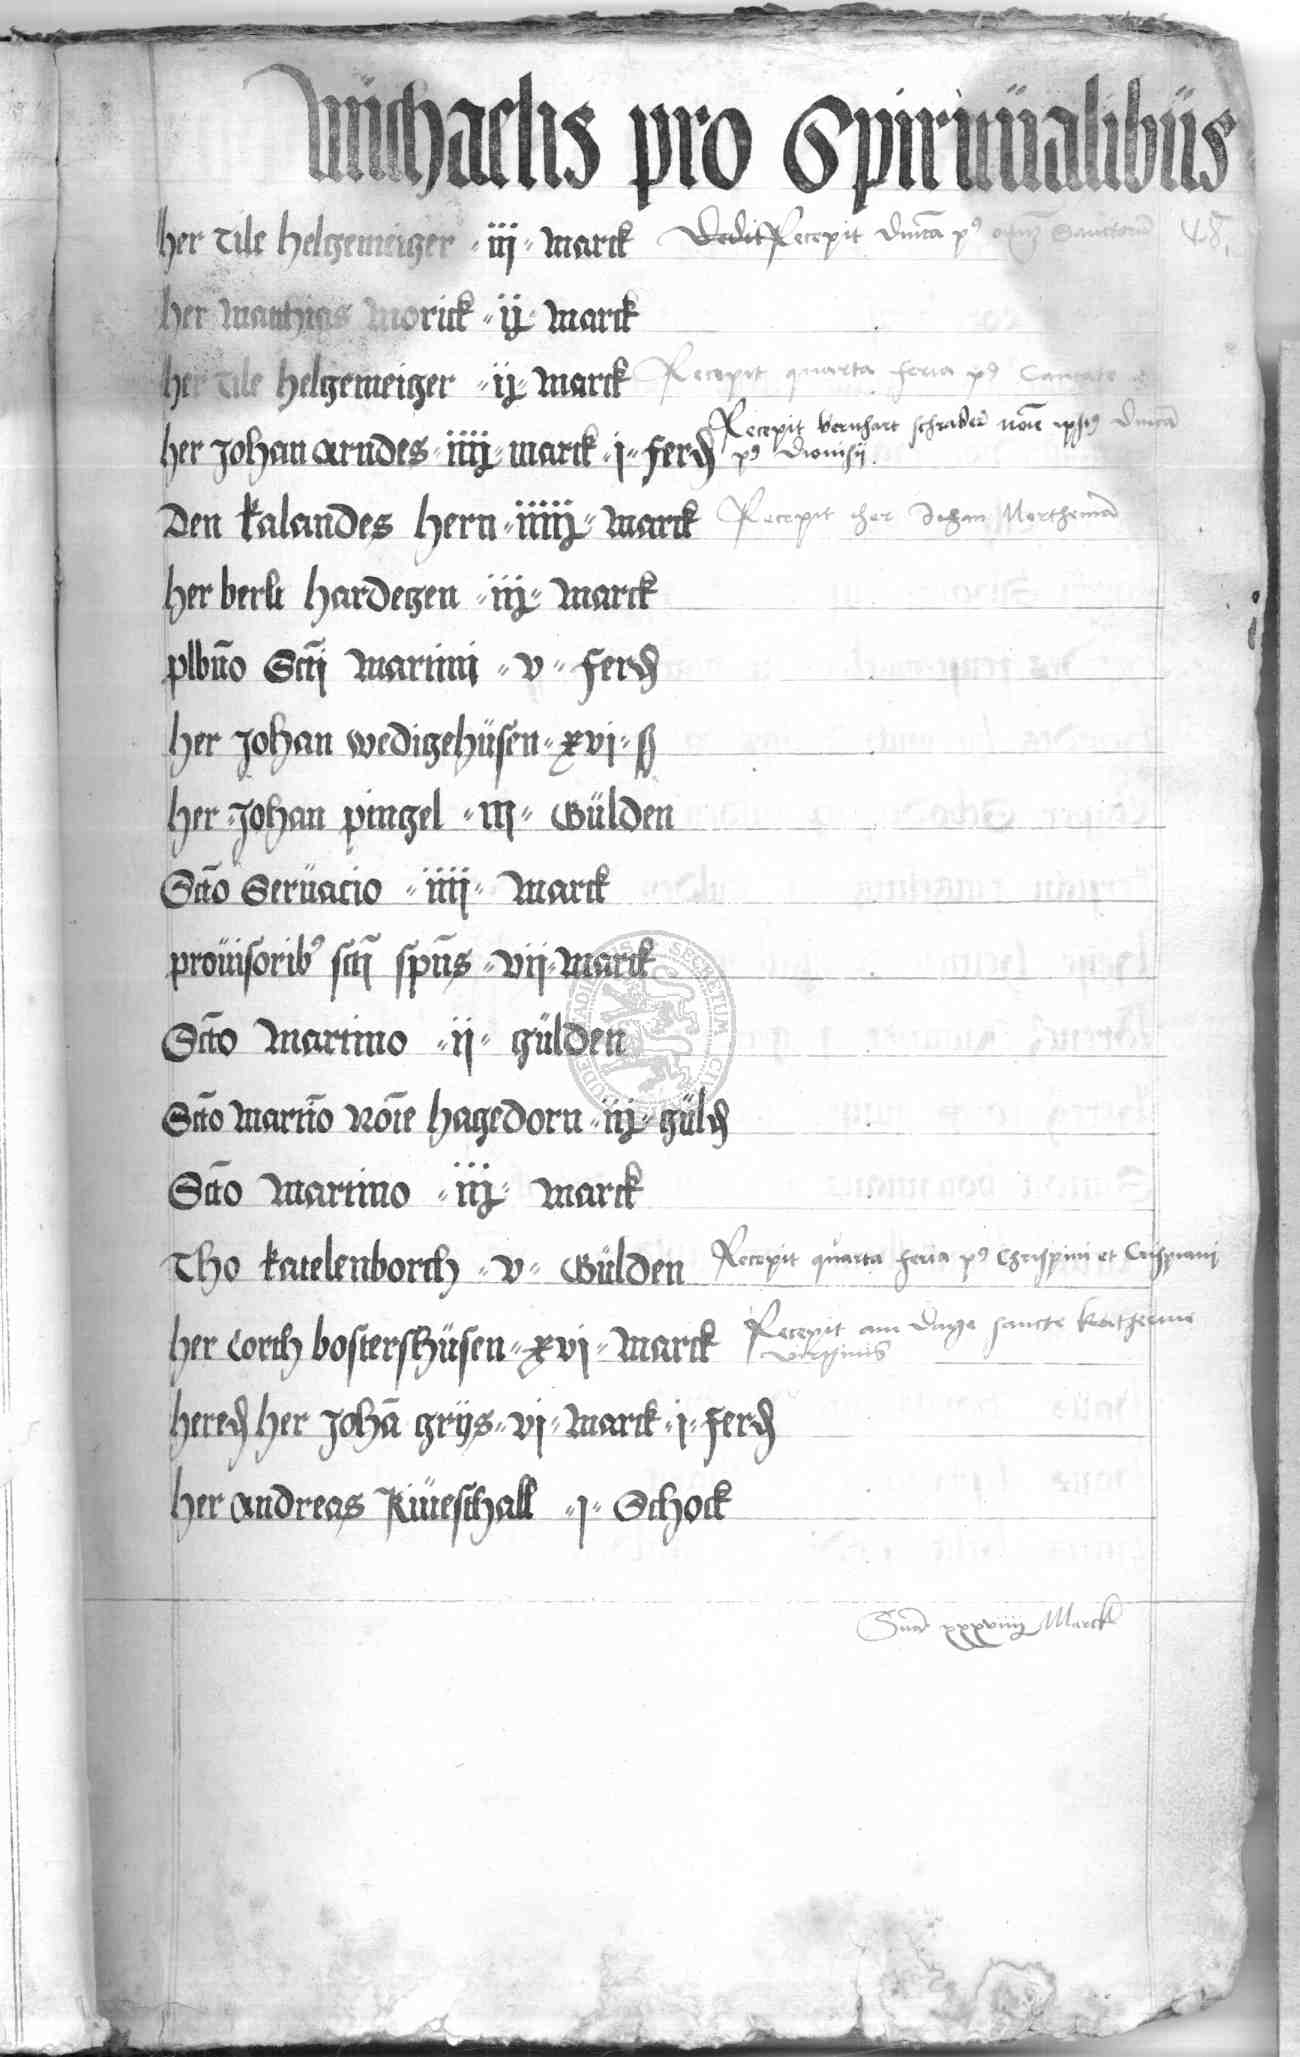 Michaelis pro Spiritualibus
her Tile Helgemeiger iij marck Dedit Recepit dnica p9 omnium Sanctoru 48
her Matthias Morick ij marck
her Tile Helgemeiger ij marck Recepit quarta feria p9 Cantate
her Johan Arndes iiij marck j ferd Recepit Bernhart schrader noie ipsi9 dnica
p9 Dionisij
Den kalandes hern iiiij marck Recepit her Johan Northeim
her berlt hardegen iij marck
plbno Scti Martini v ferd
her Johan wedigehüsen xvj ß
her Johan pingel iij Gülden
Scto Seruacio iiij marck
prouisorib9 scti spus vij marck
Scto Martino ij gülden
Scto Martino Noie hagedorn iij güld
Scto Martino iij marck
Tho katelenborch v Gülden Recepit quarta feria p9 Chrispini et Crispiani
her Corth bostershüsen xvj marck Recepit am dage sancte Katherine
virginis
hered her Johā grijs vj marck j ferd
her Andreas Riueschall j Schock
Sua xxxviiij Marck